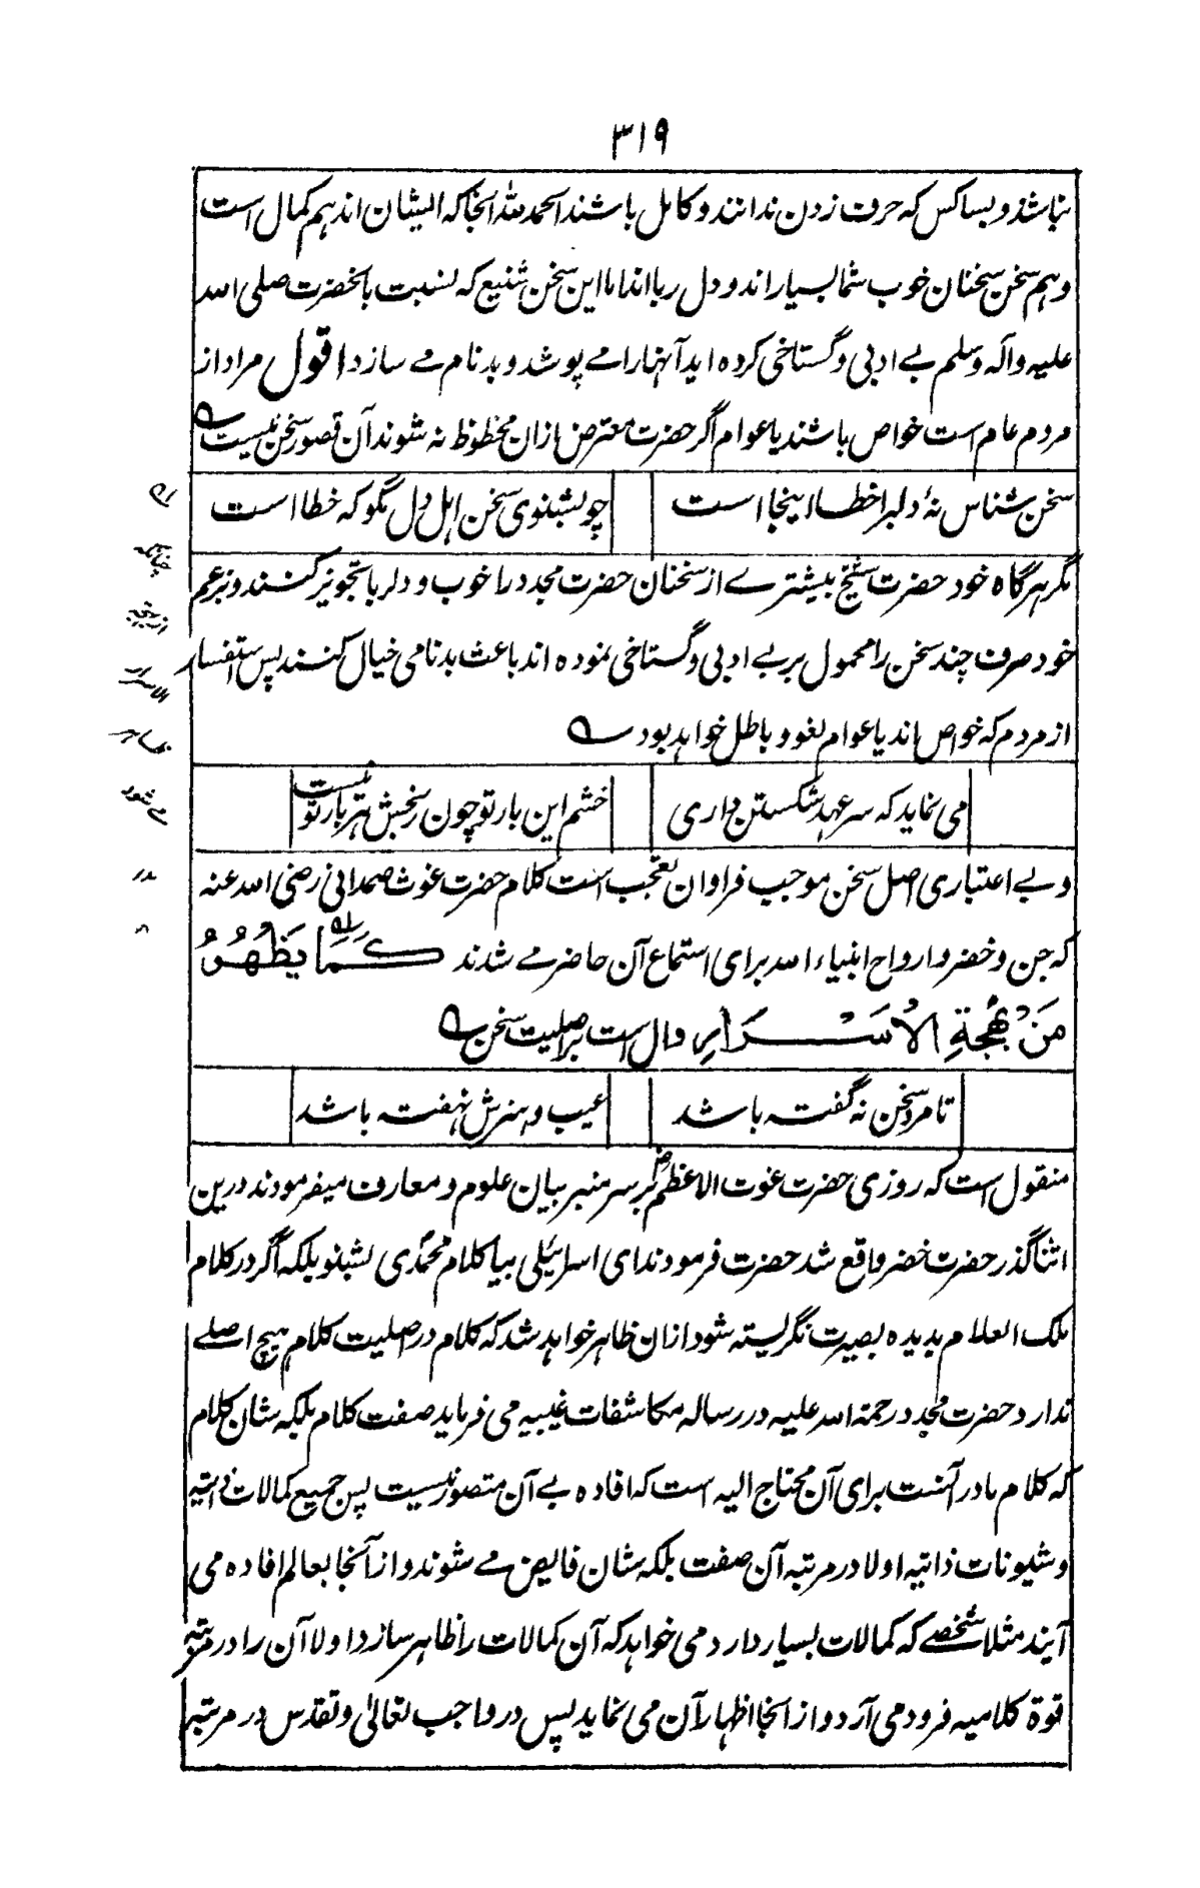 ۳۱۹
نباشد و بسا کس که حرف زدن ندانند و کامل باشند الحمد للہ آنجا که ایشان اند هم کمال است
و هم سخن سخنان خوب شما بسیار اند و دل ربا اند اما این سخن شنیع که نسبت بآنحضرت صلی الله
علیه وآله وسلم بے ادبی و گستاخی کرده اید آنها را مے پوشد و بدنام مے سازد اقول مراد از
مردم عام است خواص باشند یا عوام اگر حضرت معترض ازان محظوظ نه شوند آن قصور سخن نیست ؎
سخن شناس نهٔ دلبرا خطا اینجا است چو بشنوی سخن اهل دل مگو که خطا است
مگر هرگاه خود حضرت شیخ بیشترے از سخنان حضرت مجدد را خوب و دلربا تجویز کنند و بزعم
خود صرف چند سخن را محمول بر بے ادبی و گستاخی نموده اند باعث بدنامی خیال کنند پس استفسار
از مردم که خواص اند یا عوام لغو و باطل خواهد بود ؎
می نماید که سر عهد شکستن داری خشم این بار تو چون رنجش هر بار تو نیست
و بے اعتباری اصل سخن موجب فراوان تعجب است کلام حضرت غوث صمدانی رضی الله عنه
که جن و خضر و ارواح انبیاء الله برای استماع آن حاضر مے شدند كَمَا يَظْهَرُ
مِنْ بَهْجَةِ الْاَسْرَارِ دال است بر اصلیت سخن ؎
تا مرد سخن نه گفته باشد عیب و هنرش نهفته باشد
منقول است که روزی حضرت غوث الاعظم رض بر سر منبر بیان علوم و معارف میفرمودند درین
اثنا گذر حضرت خضر واقع شد حضرت فرمودند ای اسرائیلی بیا کلام محمدی بشنو بلکه اگر در کلام
ملک العلام بدیده بصیرت نگریسته شود ازان ظاهر خواهد شد که کلام در اصلیت کلام هیچ اصلے
ندارد حضرت مجدد رحمة الله علیه در رساله مکاشفات غیبیه می فرماید صفت کلام بلکه شان کلام
که کلام ما در آنست برای آن محتاج الیه است که افاده بے آن متصور نیست پس جمیع کمالات ذاتیه
و شیونات ذاتیه اولا در مرتبه آن صفت بلکه شان فایض مے شوند و از آنجا بعالم افاده می
آیند مثلا شخصے که کمالات بسیار دارد می خواهد که آن کمالات را ظاهر سازد اولا آن را در مرتبه
قوة کلامیه فرود می آرد و از انجا اظهار آن می نماید پس در واجب تعالیٰ و تقدس در مرتبه
چنانکه
از بهجة
الاسرار
ظاهر
مے شود